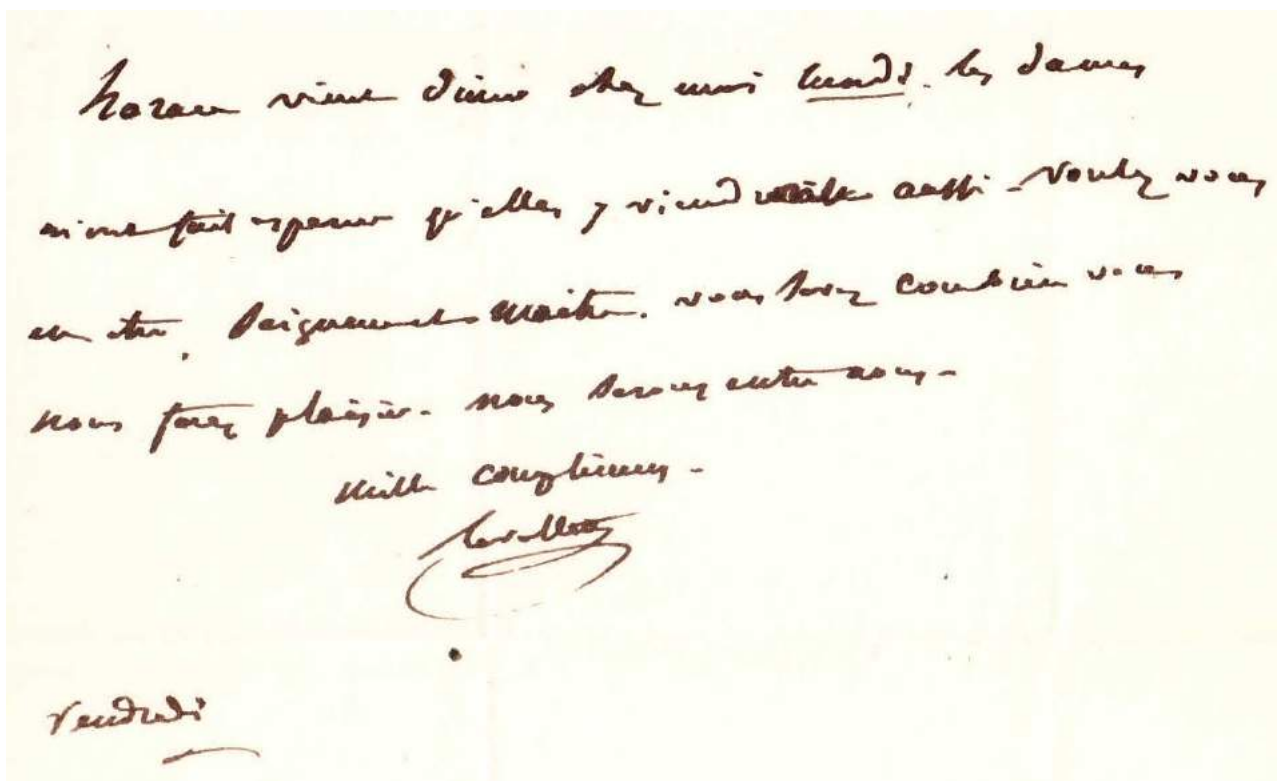 vient diner chez moi lundi. les dames
m'ont fait esperer qu'elles y viendront aussi - voulez vous
en etre, Seigneur et Maitre. vous savez combien vous
nous ferez plaisir. nous serons entre nous -
mille complimens -
Vendredi